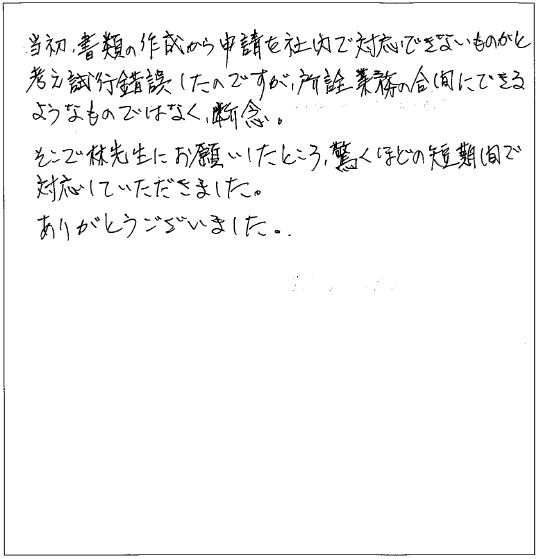 当初、書類の作成から申請を社内で対応できないものかと
考え試行錯誤したのですが、所詮業務の合間にできる
ようなものではなく、断念。
そこで林先生にお願いしたところ、驚くほどの短期間で
対応していただきました。
ありがとうございました。